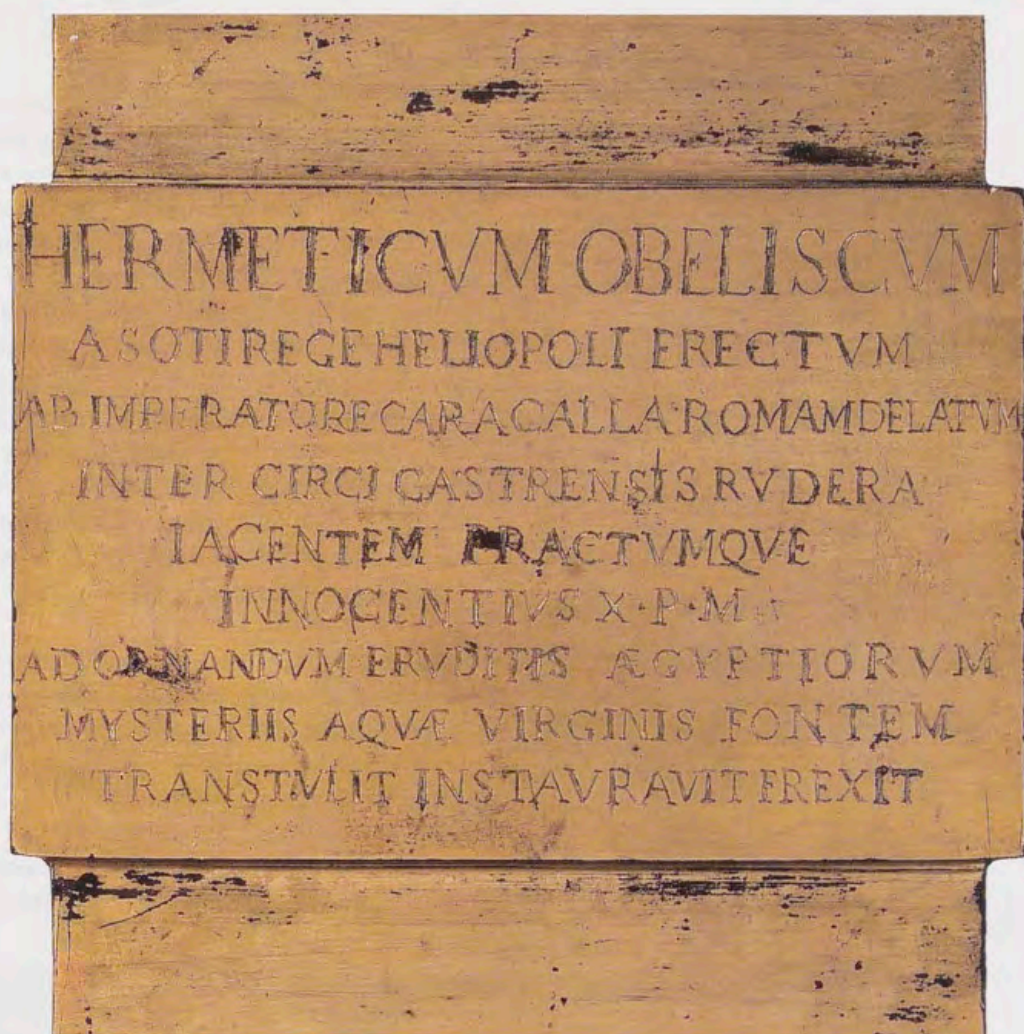 HERMETICVM OBELISCVM
A SOTI REGE HELIOPOLI ERECTVM
AB IMPERATORE CARACALLA ROMAM DELATVM
INTER CIRCI CASTRENSIS RVDERA
IACENTEM FRACTVMQVE
INNOCENTIVS X·P·M·
AD ORNANDVM ERVDITIS ÆGYPTIORVM
MYSTERIIS AQVÆ VIRGINIS FONTEM
TRANSTVLIT INSTAVRAVIT EREXIT